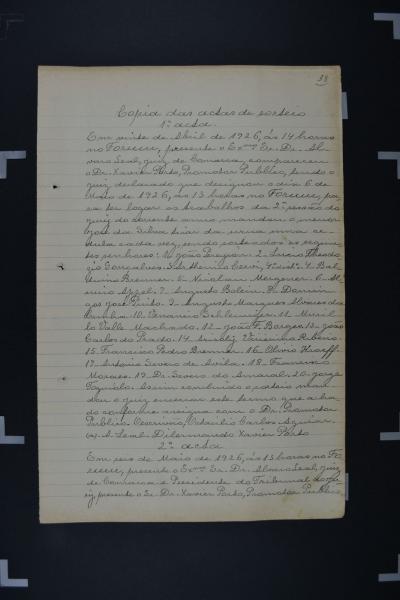 38
Copia das actas de sorteio
1ª acta.
Em vinte de Abril de 1926, ás 14 horas
no Forum, presente o Exmo Sr. Dr. Al-
varo Leal, juiz de Comarca, compareceu
o Dr. Xavier Porto, Promotor Publico, tendo o
juiz declarado que designou o dia 6 de
Maio de 1926, ás 13 horas no Forum, pa-
ra ter logar os trabalhos da 2ª sessão do
jury do corrente anno mandou o menor
José da Silva tirar da urna uma ce-
dula cada vez, sendo sorteados os seguin-
tes senhores: 1º João Pereyron. 2- Lucio Theodo-
zio Gonçalves. 4- Bal-
duino Brenner. 6- Al-
7- Augusto 8- Domin-
gos José Pinto. 9- Augusto Marques Alvares da
Cunha. 10- Venancio Schleiniger. 11- Muril-
lo Valle Machado. 12- João F. Borges. 13- João
Carlos do Prado. 14- Ribeiro.
15- Francisco Pedro Brenner. 16- Olivio Kraeff.
17- Antonio Severo de Avila. 18- Francisco
Moraes. 19- Dr. Severo do Amaral. 20- Jorge
Assim concluido o sorteio man-
dou o juiz encerrar este termo que acha-
do conforme assigna com o Dr. Promotor
Publico. Escrivão, Octacilio Carlos Aguiar.
A. Leal. Dilermando Xavier Porto
2ª acta
Em seis de Maio de 1926, ás 13 horas no Fo-
rum, presente o Exmo Sr. Dr. Alvaro Leal, juiz
de Comarca e Presidente do Tribunal do Ju-
ry, presente o Sr. Dr. Xavier Porto, Promotor Publico,